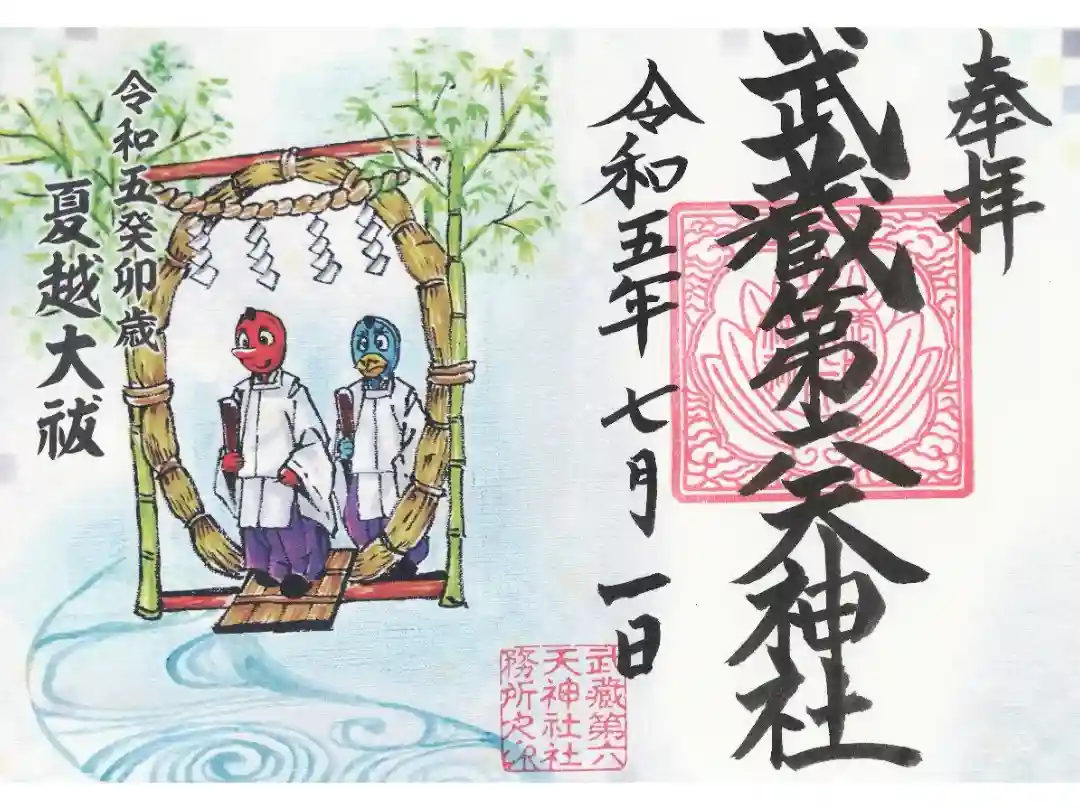 奉拝
武蔵第六天神社
令和五年 七月 一日
令和五癸卯歳
夏越大祓
武蔵第六
天神社社
務所之印